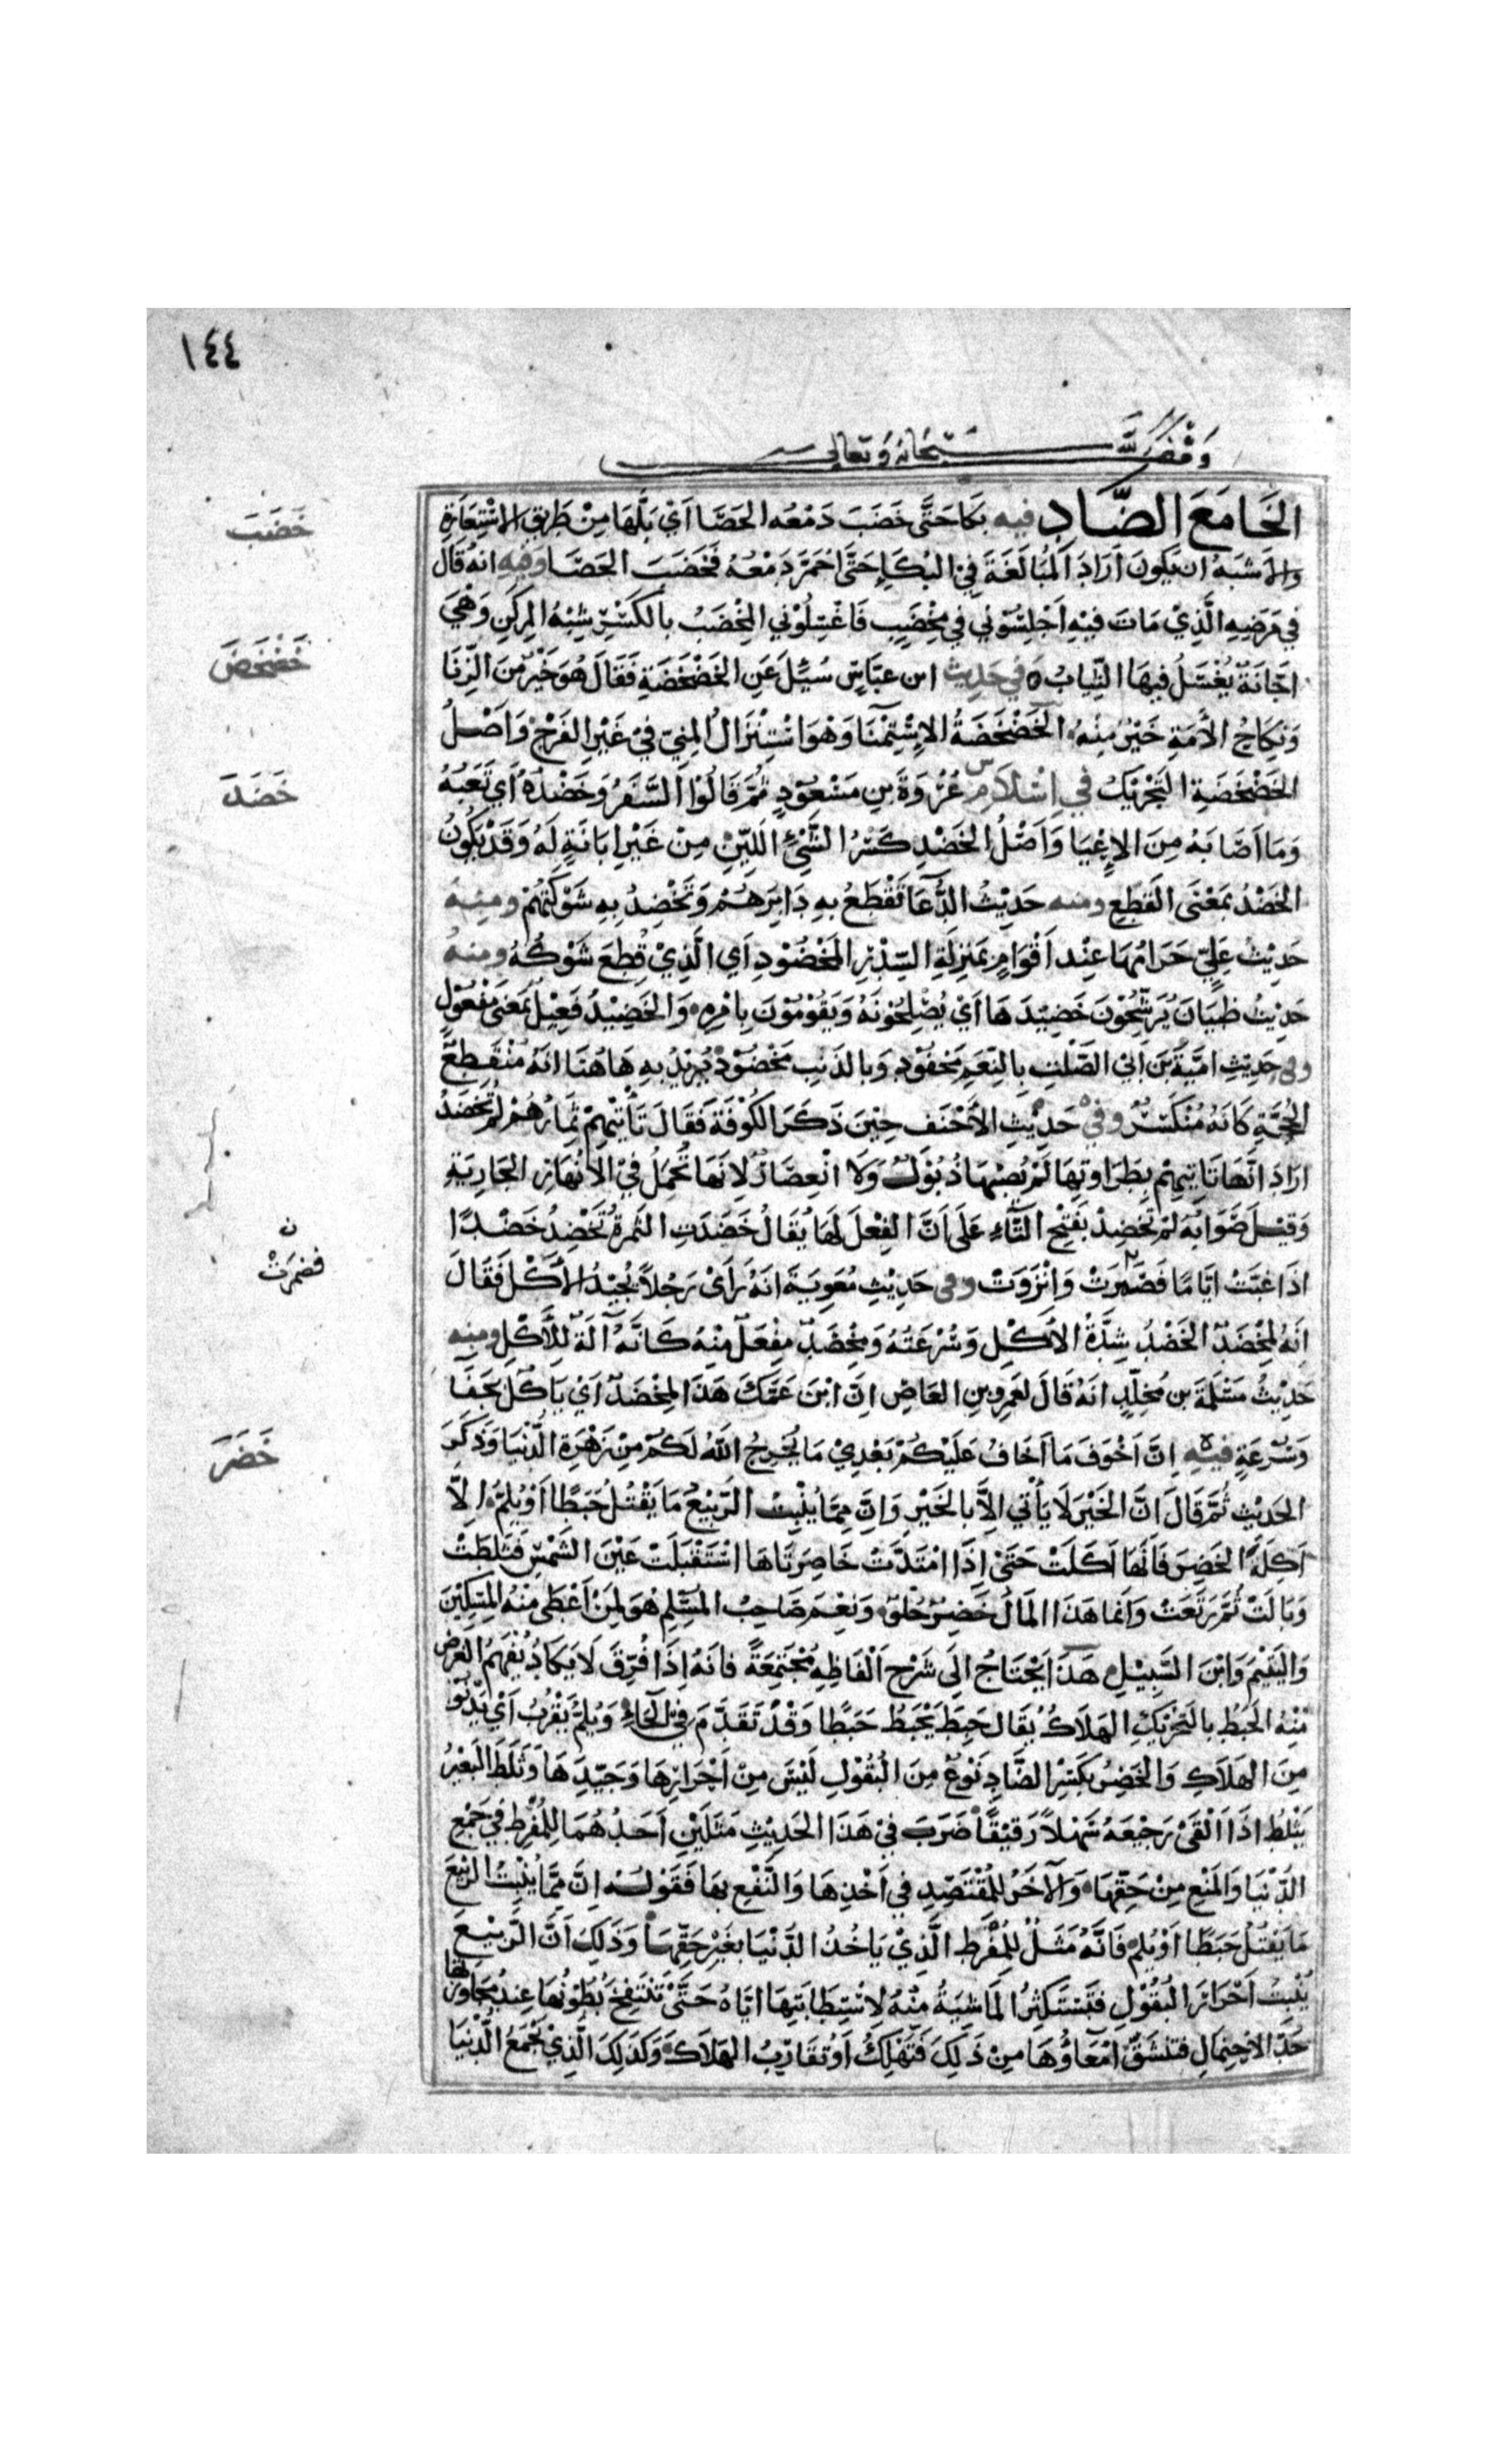 ١٤٤
وقف لله سبحانه وتعالى
الخَا مَعَ الضَّادِ فيه بَكَا حَتَّى خَضَبَ دَمْعُه الحَصَا اَيْ بَلَّهَا مِنْ طَرِيقِ الاسْتِعَارَةِ
وَالاَشبَهُ ان يَكونَ اَرَادَ المُبَالَغَةَ فِي البُكَاءِ حَتَّى احْمَرَّ دَمْعُه فَخَضَبَ الحَصَا وَفيهِ انهُ قَالَ
في مَرَضِهِ الَّذِيْ مَاتَ فيْهِ اَجْلِسُوْني في مِخْضَبٍ فَاغْسِلُوْني المِخْضَبُ بالكَسْرِ شِبْهُ المِركَنِ وَهْيَ
اجَّانَةٌ يُغْسَلُ فيهَا الثِّيابُ وَفي حَدِيث ابن عبَّاسٍ سُئِلَ عَنِ الخَضْخَضَةِ فَقَالَ هُوَ خَيْرٌ مِنَ الزِّنَا
وَنِكَاحُ الاَمَةِ خَيْرٌ مِنْهُ الخَضْخَضَةُ الاِسْتِمْنَا وَهْوَ اسْتِنْزَالُ المَنِيّ فيْ غَيْرِ الفَرْجِ وَاَصْلُ
الخَضْخَضَةِ التَحْرِيْكُ في اِسْلَامِ عُرْوَةَ بنِ مَسْعُوْدٍ ثُمَّ قَالُوْا السَّفَرُ وَخَضْدُهُ اَي تَعَبُهُ
وَمَا اَصَابَهُ مِنَ الاِعْيَا وَاَصْلُ الخَضْدِ كَسْرُ الشَّيْءِ اللَيّنِ مِنْ غَيْرِ اِبَانَةٍ لَهُ وَقَدْ يَكُونُ
الخَضْدُ بمَعْنَى القَطعِ ومنه حَدِيْثُ الدُّعَا تَقْطَعُ بهِ دَابِرَهُمْ وَتَخْضِدُ بِهِ شَوْكَتَهُمْ ومنهُ
حَدِيْثُ عَلِيّ حَرَامُهَا عِنْد اَقْوَامٍ بمَنزِلَةِ السّدْرِ المَخْضُوْدِ اَي الَّذِيْ قُطِعَ شَوْكُهُ ومنهُ
حَدِيْثُ ظبيَانَ يُرَشِّحُوْنَ خَضِيْدَهَا اَيْ يُصْلِحُوْنَهُ وَيَقُوْمُوْنَ بِامْرِهِ وَالخَضِيْدُ فَعِيْلٌ بمَعْنَى مَفْعُوْلٍ
وفى حَدِيْثِ امَيَّةَ بن اَبي الصَّلْتِ بِالنِّعَمِ مَحْفُوْدٌ وَبالذَنبِ مَخْضُوْدٌ يُرِيْدُ بهِ هَاهُنَا انهُ مُنْقَطِعُ
الحُجَّةِ كَانَهُ مُنْكَسِرٌ وفي حَدِيْثِ الاَحْنَفِ حِيْنَ ذَكَرَ الكُوْفَةَ فَقَالَ تَأْتيْهِمْ ثِمَارُهُمْ لَم تُخضَدْ
ارَادَ انَّهَا تَاتِيهِمْ بِطَرَاوتِهَا لَمْ يُصِبْهَا ذُبُوْلٌ وَلَا انْعِصَارٌ لِانَهَا تُحْمَلُ فيْ الانهَارِ الجَارِيَةِ
وَقِيْلَ صَوَابُهُ لَمْ تَخْضَدْ بفَتْحِ التَّاءِ عَلَى اَنَّ الفِعْلَ لَهَا يُقَالُ خَضِدَتِ الثمرَةُ تَخْضَدُ خَضَدًا
اذَا غَبَّتْ ايَّامًا فَضَمُرَتْ وَانْزَوَتْ وفى حَدِيْثِ مُعَوِيَةَ انهُ رَاَىْ رَجُلاً يُجِيْدُ الاَكْلَ فَقَالَ
انَهُ لمِخْضَدٌ الخَضْدُ شِدَّةُ الاَكْلِ وَسُرْعَتُهُ وَمِخْضَدٌ مِفْعَلٌ مِنْهُ كَانَّهُ آلَةٌ للْأَكْلِ ومنه
حَدِيْثُ مَسْلَمَةَ بن مُخلّدٍ انهُ قَالَ لعَمرِو بنِ العَاصِ اِنَّ ابْنَ عَمّكَ هَذَا لمِخْضَدٌ اَيْ يَاكُلُ بجَفَا
وَسُرْعَةٍ فيهِ اِنَّ اَخْوَفَ مَا اَخَافُ عَلَيْكُمْ بَعْدِيْ مَا يُخرِجُ اللهُ لَكُمْ مِنْ زَهْرَةِ الدُّنْيَا وَذَكَرَ
الحَدِيْثَ ثُمَّ قَالَ اِنَّ الخَيْرَ لَا يَأْتي اِلاَّ بالخَيْرِ وَاِنَّ مِمَّا يُنْبِتُ الرَّبِيْعُ مَا يَقْتُلُ حَبَطًا اَوْ يُلِمُّ اِلاَّ
آكِلَةَ الخَضِرِ فَانَّهَا اَكَلَتْ حَتَى اِذَا امْتَدَّتْ خَاصِرَتَاهَا اسْتَقْبَلَتْ عَيْنَ الشَمْسِ فَثَلَطَتْ
وَبَالَتْ ثُمَّ رَتَعَتْ وَانمَا هَذَا المَالُ خَضِرٌ حُلْوٌ وَنِعْمَ صَاحِبُ المُسْلِمِ هُوَ لِمَنْ اَعْطَى مِنْهُ المِسْكِيْنَ
وَاليَتِيْمَ وَابْنَ السَّبِيْلِ هَذَا يَحْتَاجُ اِلَى شَرْحِ اَلْفَاظِهِ مُجْتَمِعَةً فَانَهُ اِذَا فُرّقَ لَا يَكَادُ يُفهَمُ الغَرضُ
مِنْهُ الحَبَطُ بالتَحْرِيْكِ الهَلاَكُ يُقَال حَبِطَ يَحْبَطُ حَبَطًا وَقَدْ تَقَدَّمَ فِي الحَاءِ وَيُلِمُّ يَقْرُبُ اَيْ يَدْنُو
مِنَ الهَلَاكِ وَالخَضِرُ بكَسْرِ الضَّادِ نَوْعٌ مِنَ البُقُوْلِ لَيْسَ مِنْ اَحْرَارِهَا وَجَيّدِهَا وَثَلَطَ البَعِيْرُ
يَثْلِطُ اذَا اَلْقَى رَجِيْعَهُ سَهْلاً رَقِيْقًا ضَرَبَ فيْ هَذَا الحَدِيْثِ مَثَلَيْنِ اَحَدُهُمَا لِلْمُفْرِط فيْ جَمْعِ
الدّنْيَا وَالمَنْعِ مِنْ حَقّهَا وَالآخَرُ لِلْمُقْتَصِدِ في اَخْذِهَا وَالنَّفْعِ بِهَا فَقَوْلُهُ اِنَّ مِمَّا يُنْبِتُ الرَّبِيْعُ
مَا يَقْتُلُ حَبَطًا اَوْ يُلِمُّ فَانَّهُ مَثَلٌ لِلْمُفْرِط الَّذِيْ يَاخُذُ الدُّنْيَا بغَيْرِ حَقِّهَا وَذَلِكَ اَنَّ الرَّبِيْعَ
يُنْبِتُ اَحْرَارَ البُقُوْلِ فتَسْتَكْثِرُ المَاشِيَةُ مِنْهُ لِاسْتِطَابَتِهَا ايَّاهُ حَتَّى تَنْتَفِخَ بُطُوْنُهَا عِنْدَ مُجَاوزَتهَا
حَدَّ الاحْتِمَالِ فتنْشَقُّ امْعَاؤُهَا مِنْ ذَلِكَ فَتَهْلِكُ اَوْ تُقَارِبُ الهَلَاكَ وَكَذَلِكَ الَّذِيْ يَجْمَعُ الدُّنْيَا
خَضَبَ
خَضْخَضَ
خَضَدَ
ن
فضمرَتْ
خَضَرَ